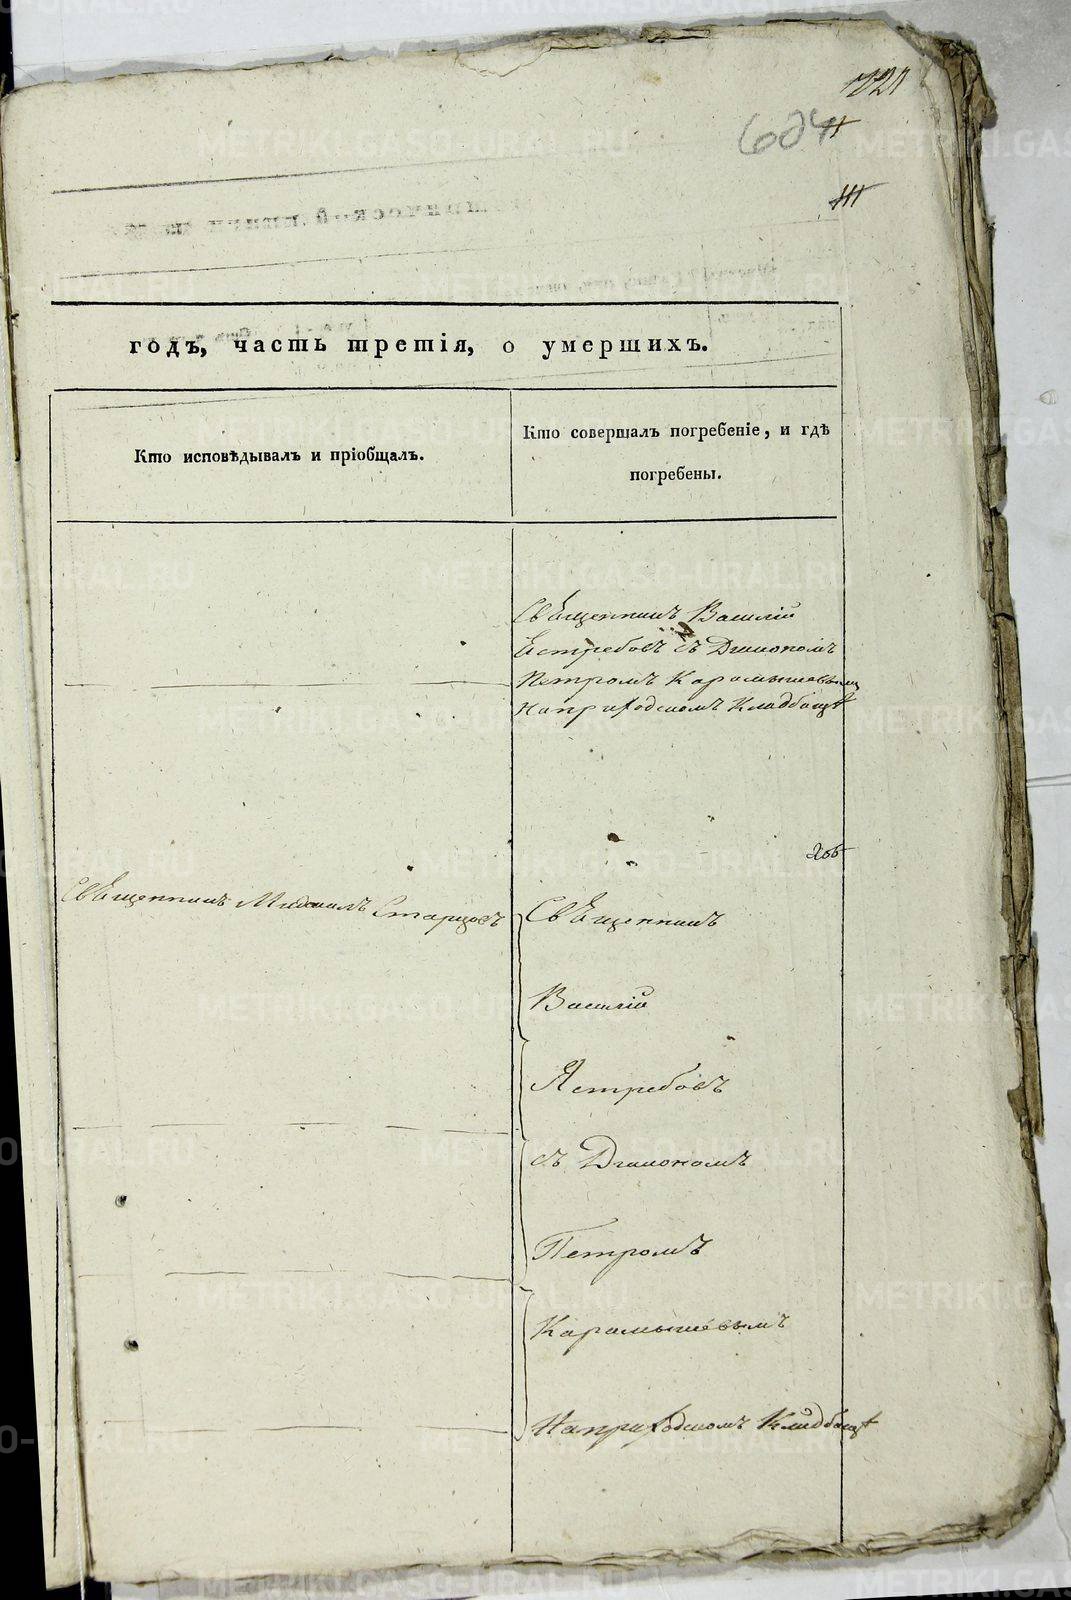 721
604
III
годъ, часть третія, о умершихъ.
Кто исповѣдывалъ и пріобщалъ.
Кто совершалъ погребеніе, и гдѣ
погребены.
Священникъ Василій
Ястребовъ съ Дьякономъ
Петромъ Карамышевымъ
На приходскомъ Кладбищѣ
Священникъ Старцовъ
Священникъ
Василій
Ястребовъ
съ Дьякономъ
Петромъ
Карамышевымъ
На приходскомъ Кладбищѣ
METRIKI.GASO-URAL.RU